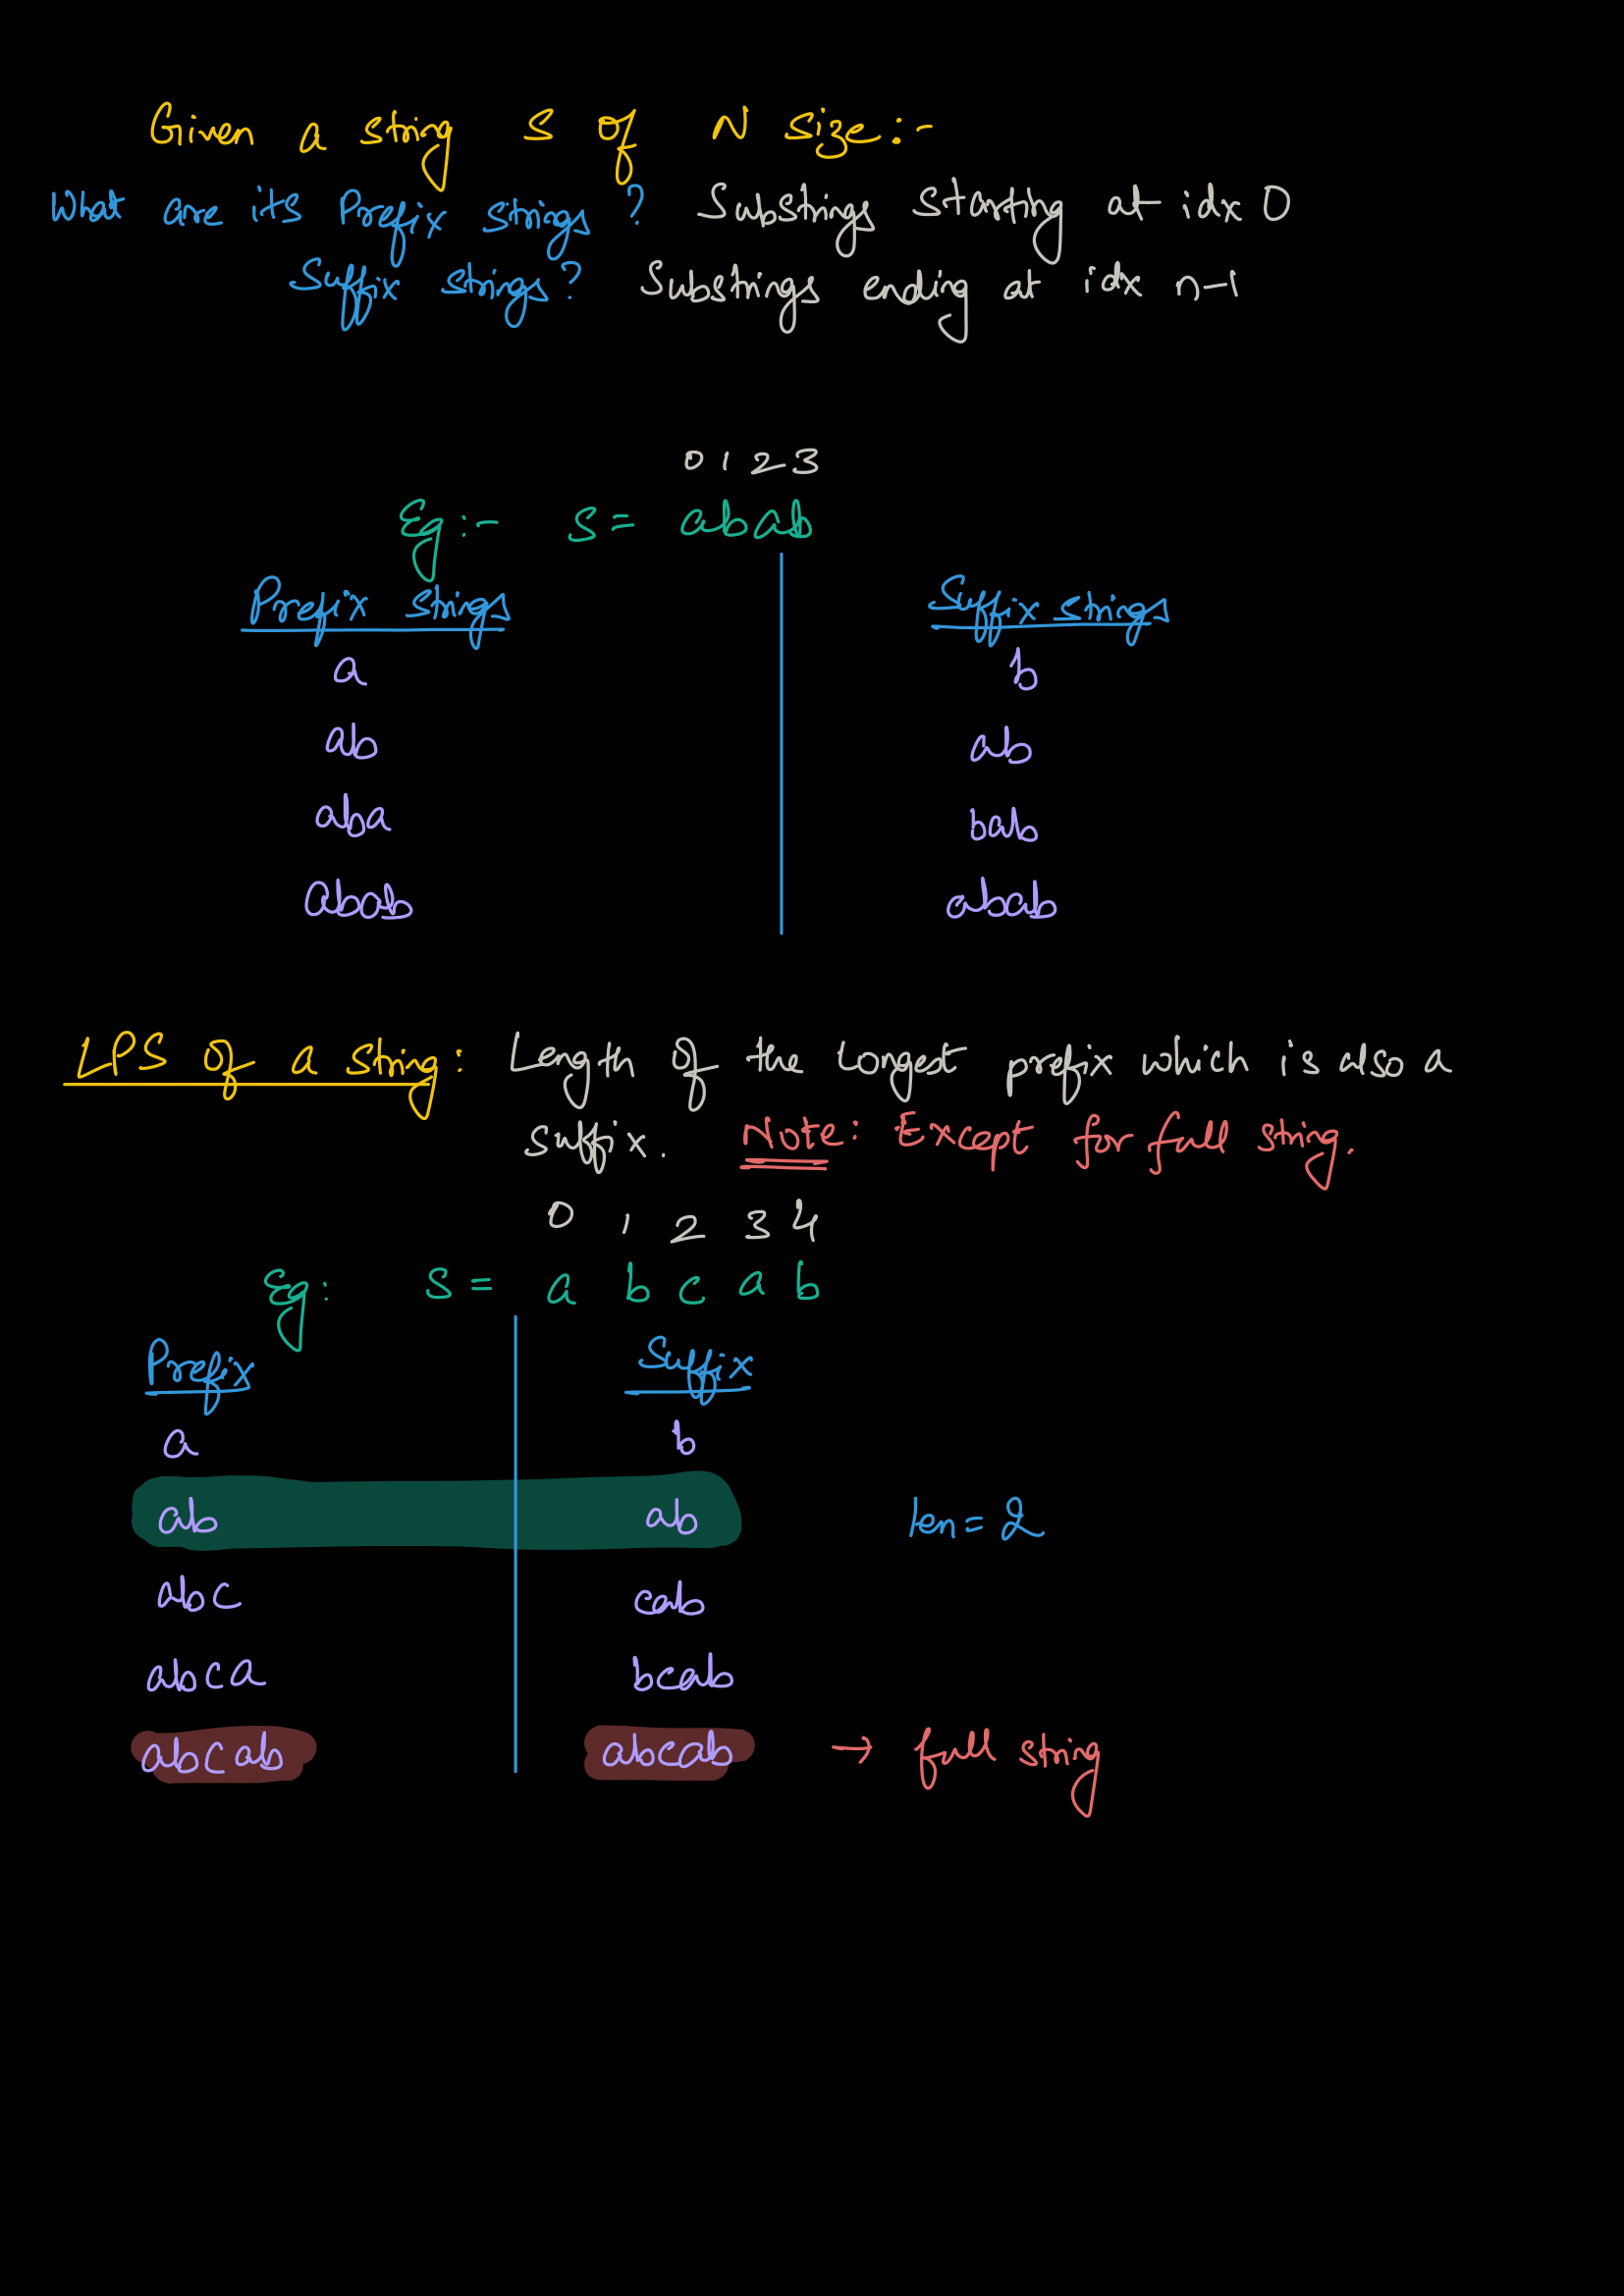 Given a string S of N size:-
What are its Prefix strings? Substrings starting at idx 0
Suffix strings? Substrings ending at idx n-1
0 1 2 3
Eg:- S = abab
Prefix strings Suffix strings
a b
ab ab
aba bab
abab abab
LPS of a string: Length of the longest prefix which is also a
suffix. Note: Except for full string.
0 1 2 3 4
Eg: S = a b c a b
Prefix Suffix
a b
ab ab len = 2
abc cab
abca bcab
abcab abcab → full string